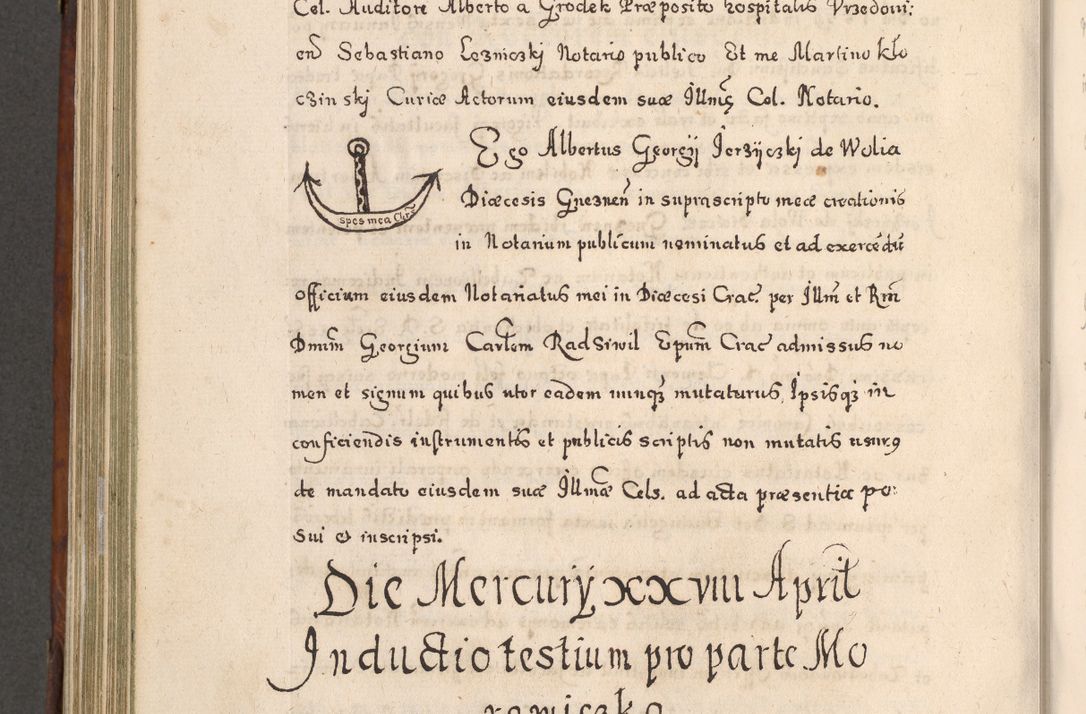 Cel. Auditore Alberto a Grodek Præposito hospitalis Vrzedoui:
en̄ Sebastiano Lezniczkj Notario publico Et me Martino kło
czinskj Curiæ Actorum eiusdem suæ Illmę Col. Notario.
Ego Albertus Georgÿ Jerzÿczkj de Wolia
spes mea Chrs̃
Diæcesis Gneznen̄ in suprascripto meæ creationis
in Notarium publicum nominatus et ad exercẽdũ
officium eiusdem Notariatus mei in Diæcesi Crac. per Illm̃ et Rm̃
Dnum̃ Georgium Carłem Radsiwil Epum̃ Crac admissus no
men et signum quibus utor eadem nunq̃ȝ mutaturus, Ipsisqȝ in
conficiendis instrumentis et publicis scriptis non mutatis usurꝯ
de mandato eiusdem suæ Illmæ̃ Cels. ad acta præsentia po:
sui & inscripsi.
Die Mercurÿ xxviii Aprił
Inductio testium pro parte Mo